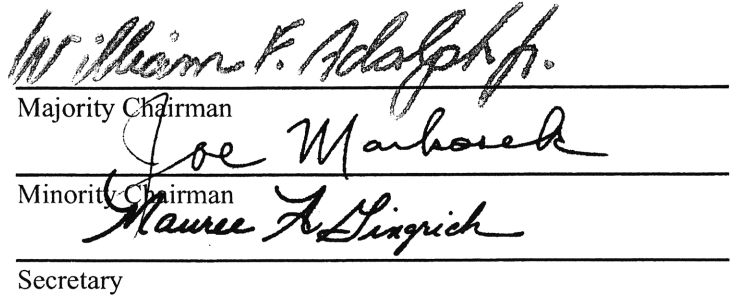 William F. Adolph, Jr.
Majority Chairman
Joe Markosek
Minority Chairman
Mauree A Gingrich
Secretary